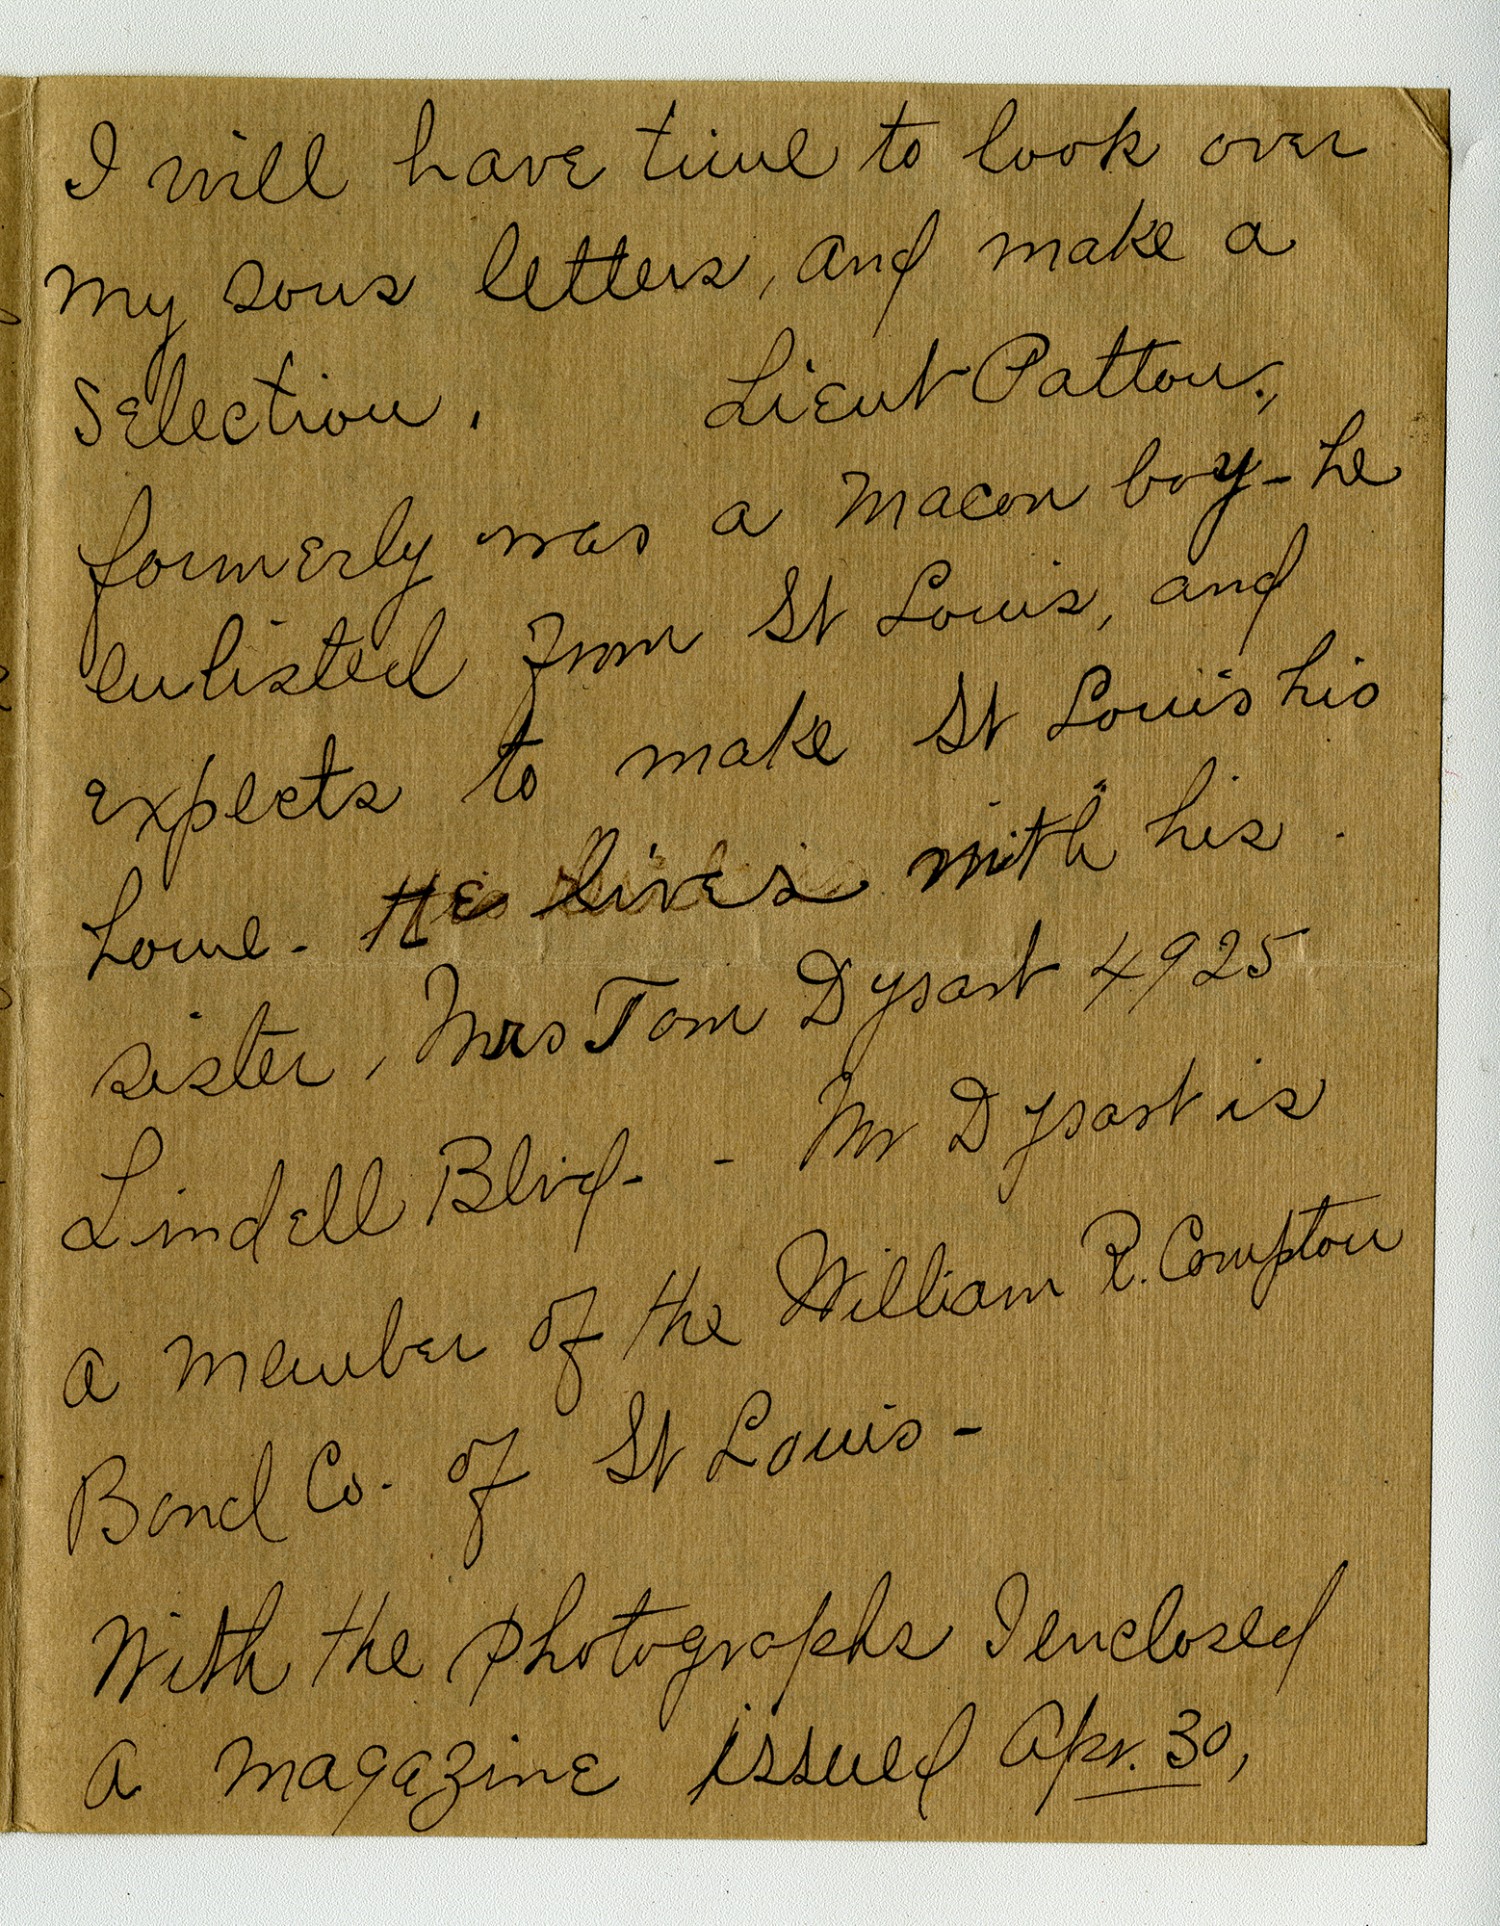 I will have time to look over
my sons letters, and make a
selection. Lieut Patton,
formerly was a Macon boy - he
enlisted from St Louis, and
expects to make St Louis his
home - He lives with his
sister, Mrs Tom Dysart 4925
Lindell Blvd. - Mr Dysart is
a member of the William R. Compton
Bond Co. of St Louis -
With the photographs I enclosed
a magazine issued Apr. 30,